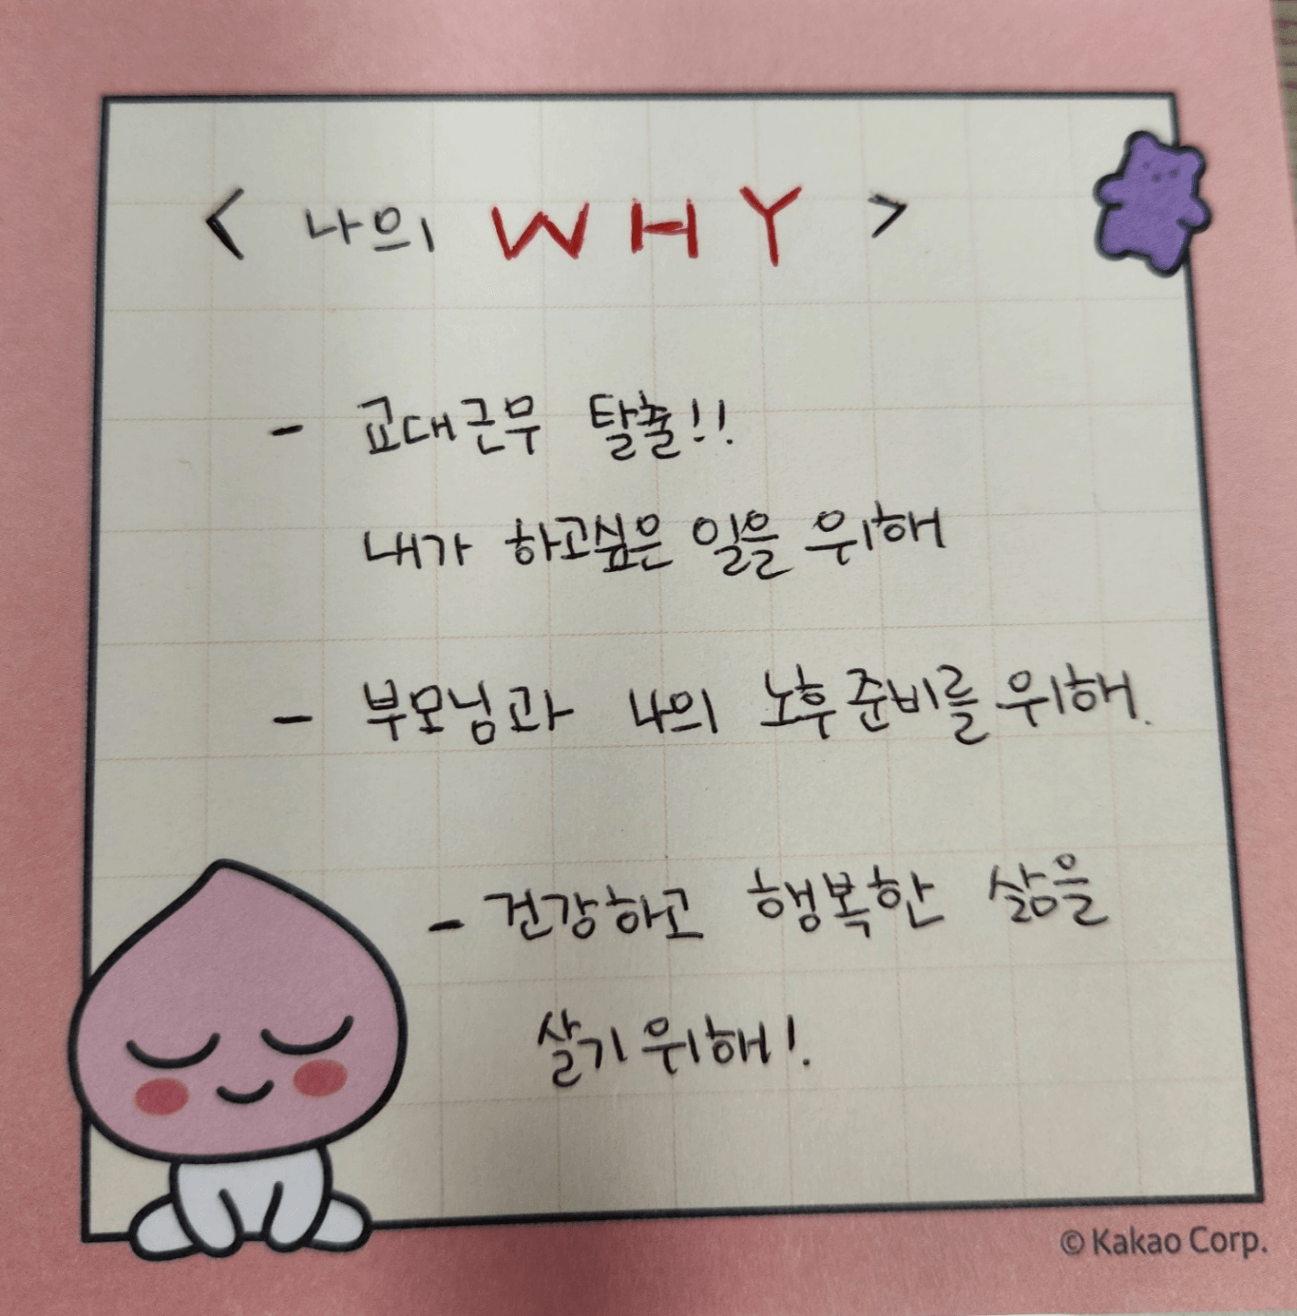 < 나의 WHY >
- 교대근무 탈출!!
내가 하고싶은 일을 위해
- 부모님과 나의 노후준비를 위해.
- 건강하고 행복한 삶을
살기위해!.
© Kakao Corp.